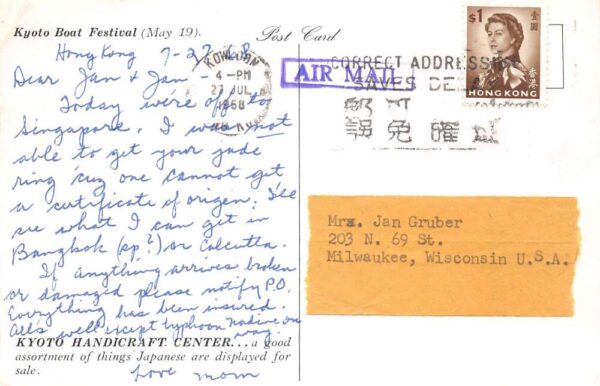 Kyoto Boat Festival (May 19).
Post Card
Hong Kong 7-27-68
Dear Jan & Jan -
Today we're off to
Singapore. I was not
able to get your jade
ring 'cuz one cannot get
a certificate of origen. I'll
see what I can get in
Bangkok (sp?) or Calcutta.
If anything arrives broken
or damaged please notify P.O.
Everything has been insured.
All's well except typhoon Nadine on
way.
Love Mom
KYOTO HANDICRAFT CENTER...a good
assortment of things Japanese are displayed for
sale.
KOWLOON
4-PM
27 JUL
1968
AIR MAIL
CORRECT ADDRESSING
SAVES DE
誤 免
$1
壹圓
香港
HONG KONG
Mrs. Jan Gruber
203 N. 69 St.
Milwaukee, Wisconsin U.S.A.